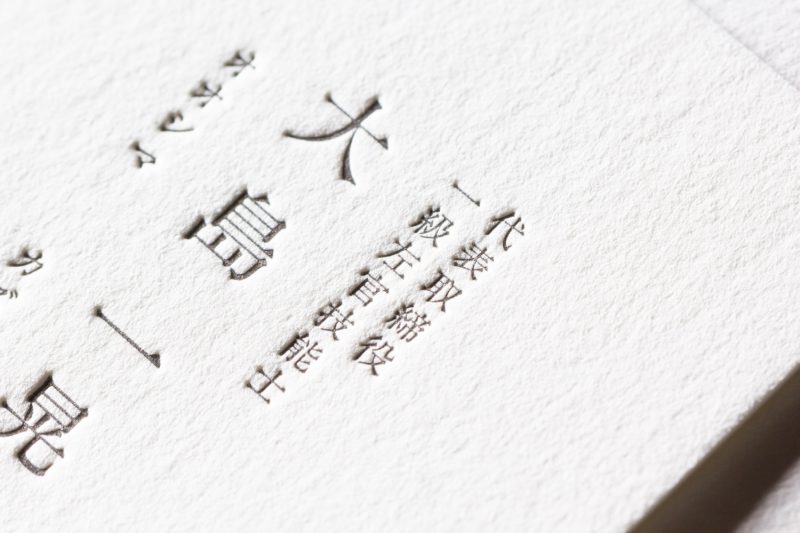 代表取締役
一級左官技能士
大島一晃
オオシマ カズ